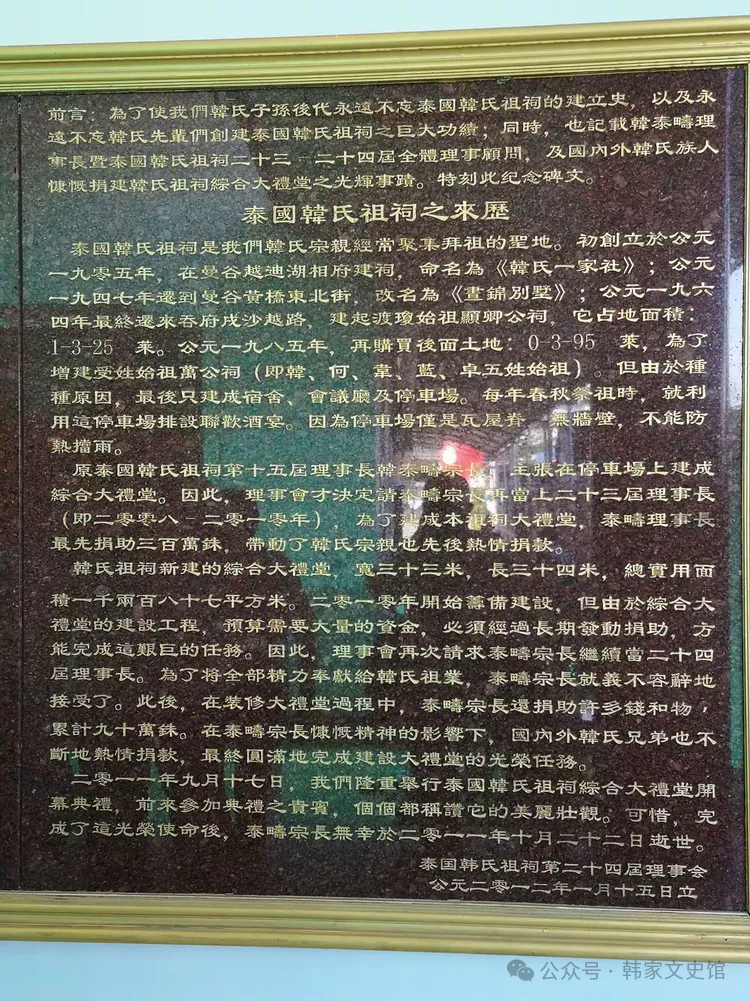 前言：為了使我們韓氏子孫後代永遠不忘泰國韓氏祖祠的建立史，以及永
遠不忘韓氏先輩們創建泰國韓氏祖祠之巨大功績；同時，也記載韓泰疇理
事長暨泰國韓氏祖祠二十三－二十四屆全體理事顧問，及國內外韓氏族人
慷慨捐建韓氏祖祠綜合大禮堂之光輝事蹟。特刻此纪念碑文。
泰國韓氏祖祠之來歷
泰國韓氏祖祠是我們韓氏宗親經常聚集拜祖的聖地。初創立於公元
一九零五年，在曼谷越迪湖相府建祠，命名為《韓氏一家社》；公元
一九四七年遷到曼谷黃橋東北街，改名為《晝錦別墅》；公元一九六
四年最終遷來吞府戌沙越路，建起渡瓊始祖顯卿公祠，它占地面積：
1-3-25 萊。公元一九八五年，再購買後面土地：0-3-95 萊，為了
增建受姓始祖萬公祠（即韓、何、韋、藍、卓五姓始祖）。但由於種
種原因，最後只建成宿舍、會議廳及停車場。每年春秋祭祖時，就利
用這停車場排設聯歡酒宴。因為停車場僅是瓦屋脊，無牆壁，不能防
熱擋雨。
原泰國韓氏祖祠第十五屆理事長韓泰疇宗長，主張在停車場上建成
綜合大禮堂。因此，理事會才決定請泰疇宗長再當上二十三屆理事長
（即二零零八－二零一零年），為了建成本祖祠大禮堂，泰疇理事長
最先捐助三百萬銖，帶動了韓氏宗親也先後熱情捐款。
韓氏祖祠新建的綜合大禮堂，寬三十三米，長三十四米，總實用面
積一千兩百八十七平方米。二零一零年開始籌備建設，但由於綜合大
禮堂的建設工程，預算需要大量的資金，必須經過長期發動捐助，方
能完成這艱巨的任務。因此，理事會再次請求泰疇宗長繼續當二十四
屆理事長。為了将全部精力奉獻給韓氏祖業，泰疇宗長就義不容辭地
接受了。此後，在裝修大禮堂過程中，泰疇宗長還捐助許多錢和物，
累計九十萬銖。在泰疇宗長慷慨精神的影響下，國內外韓氏兄弟也不
斷地熱情捐款，最終圓滿地完成建設大禮堂的光榮任務。
二零一一年九月十七日，我們隆重舉行泰國韓氏祖祠綜合大禮堂開
幕典禮，前來參加典禮之貴賓，個個都稱讚它的美麗壯觀。可惜，完
成了這光榮使命後，泰疇宗長無幸於二零一一年十月二十二日逝世。
泰国韩氏祖祠第二十四屆理事会
公元二零一二年一月十五日立
公众号·韩家文史馆